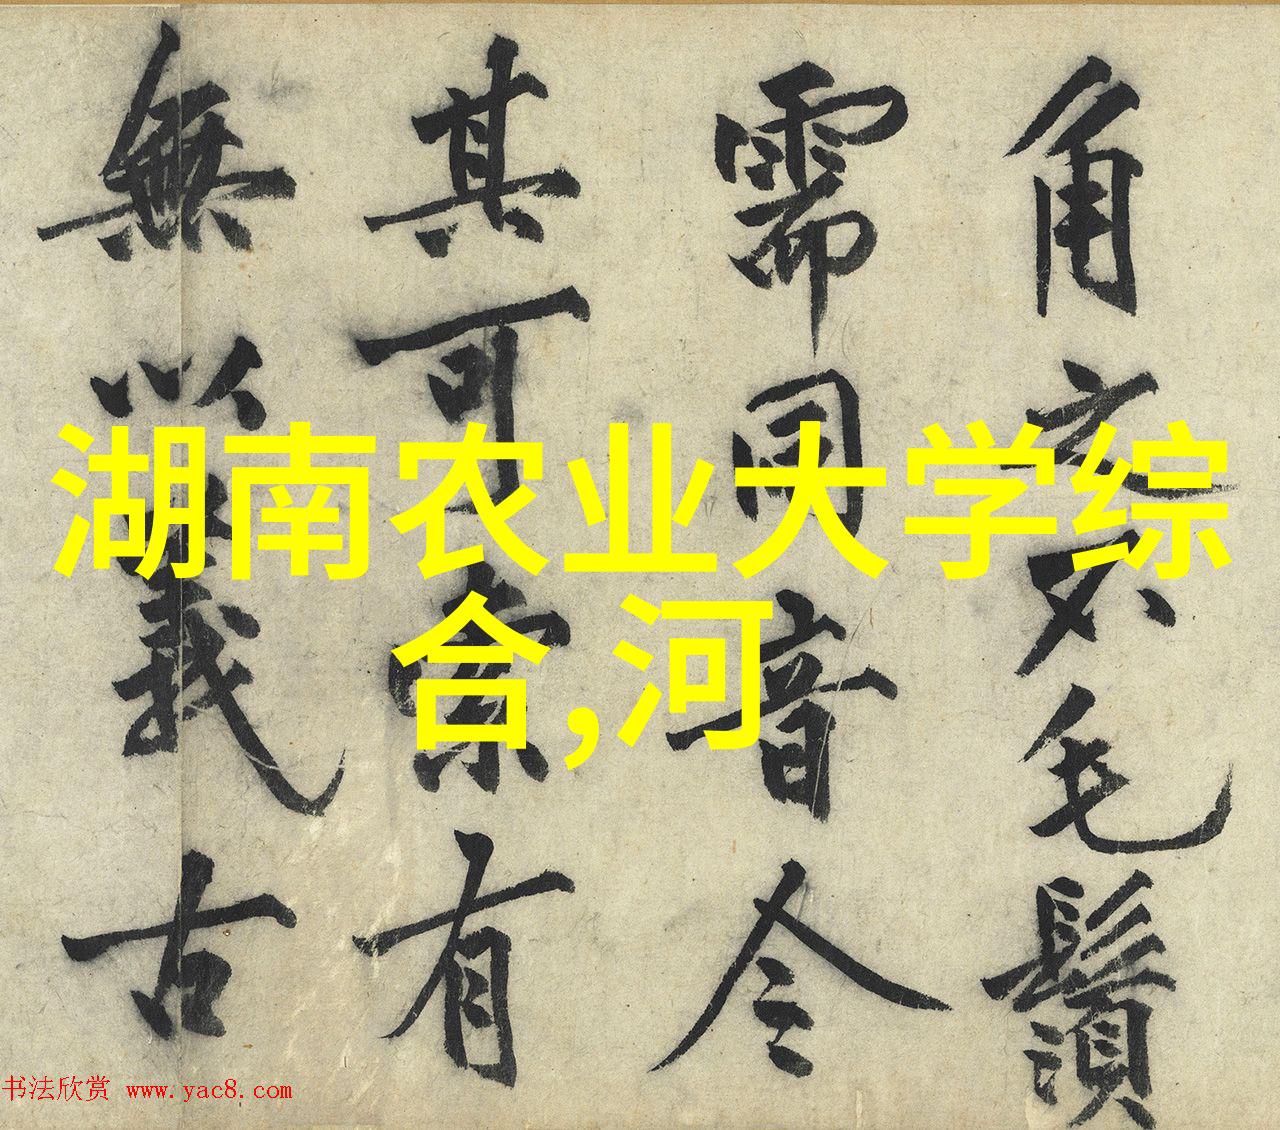 角亥不毛鬚
需同音今
其可索有
無以義古
湖南农业大学综
合,河
书法欣赏 www.yac8.com